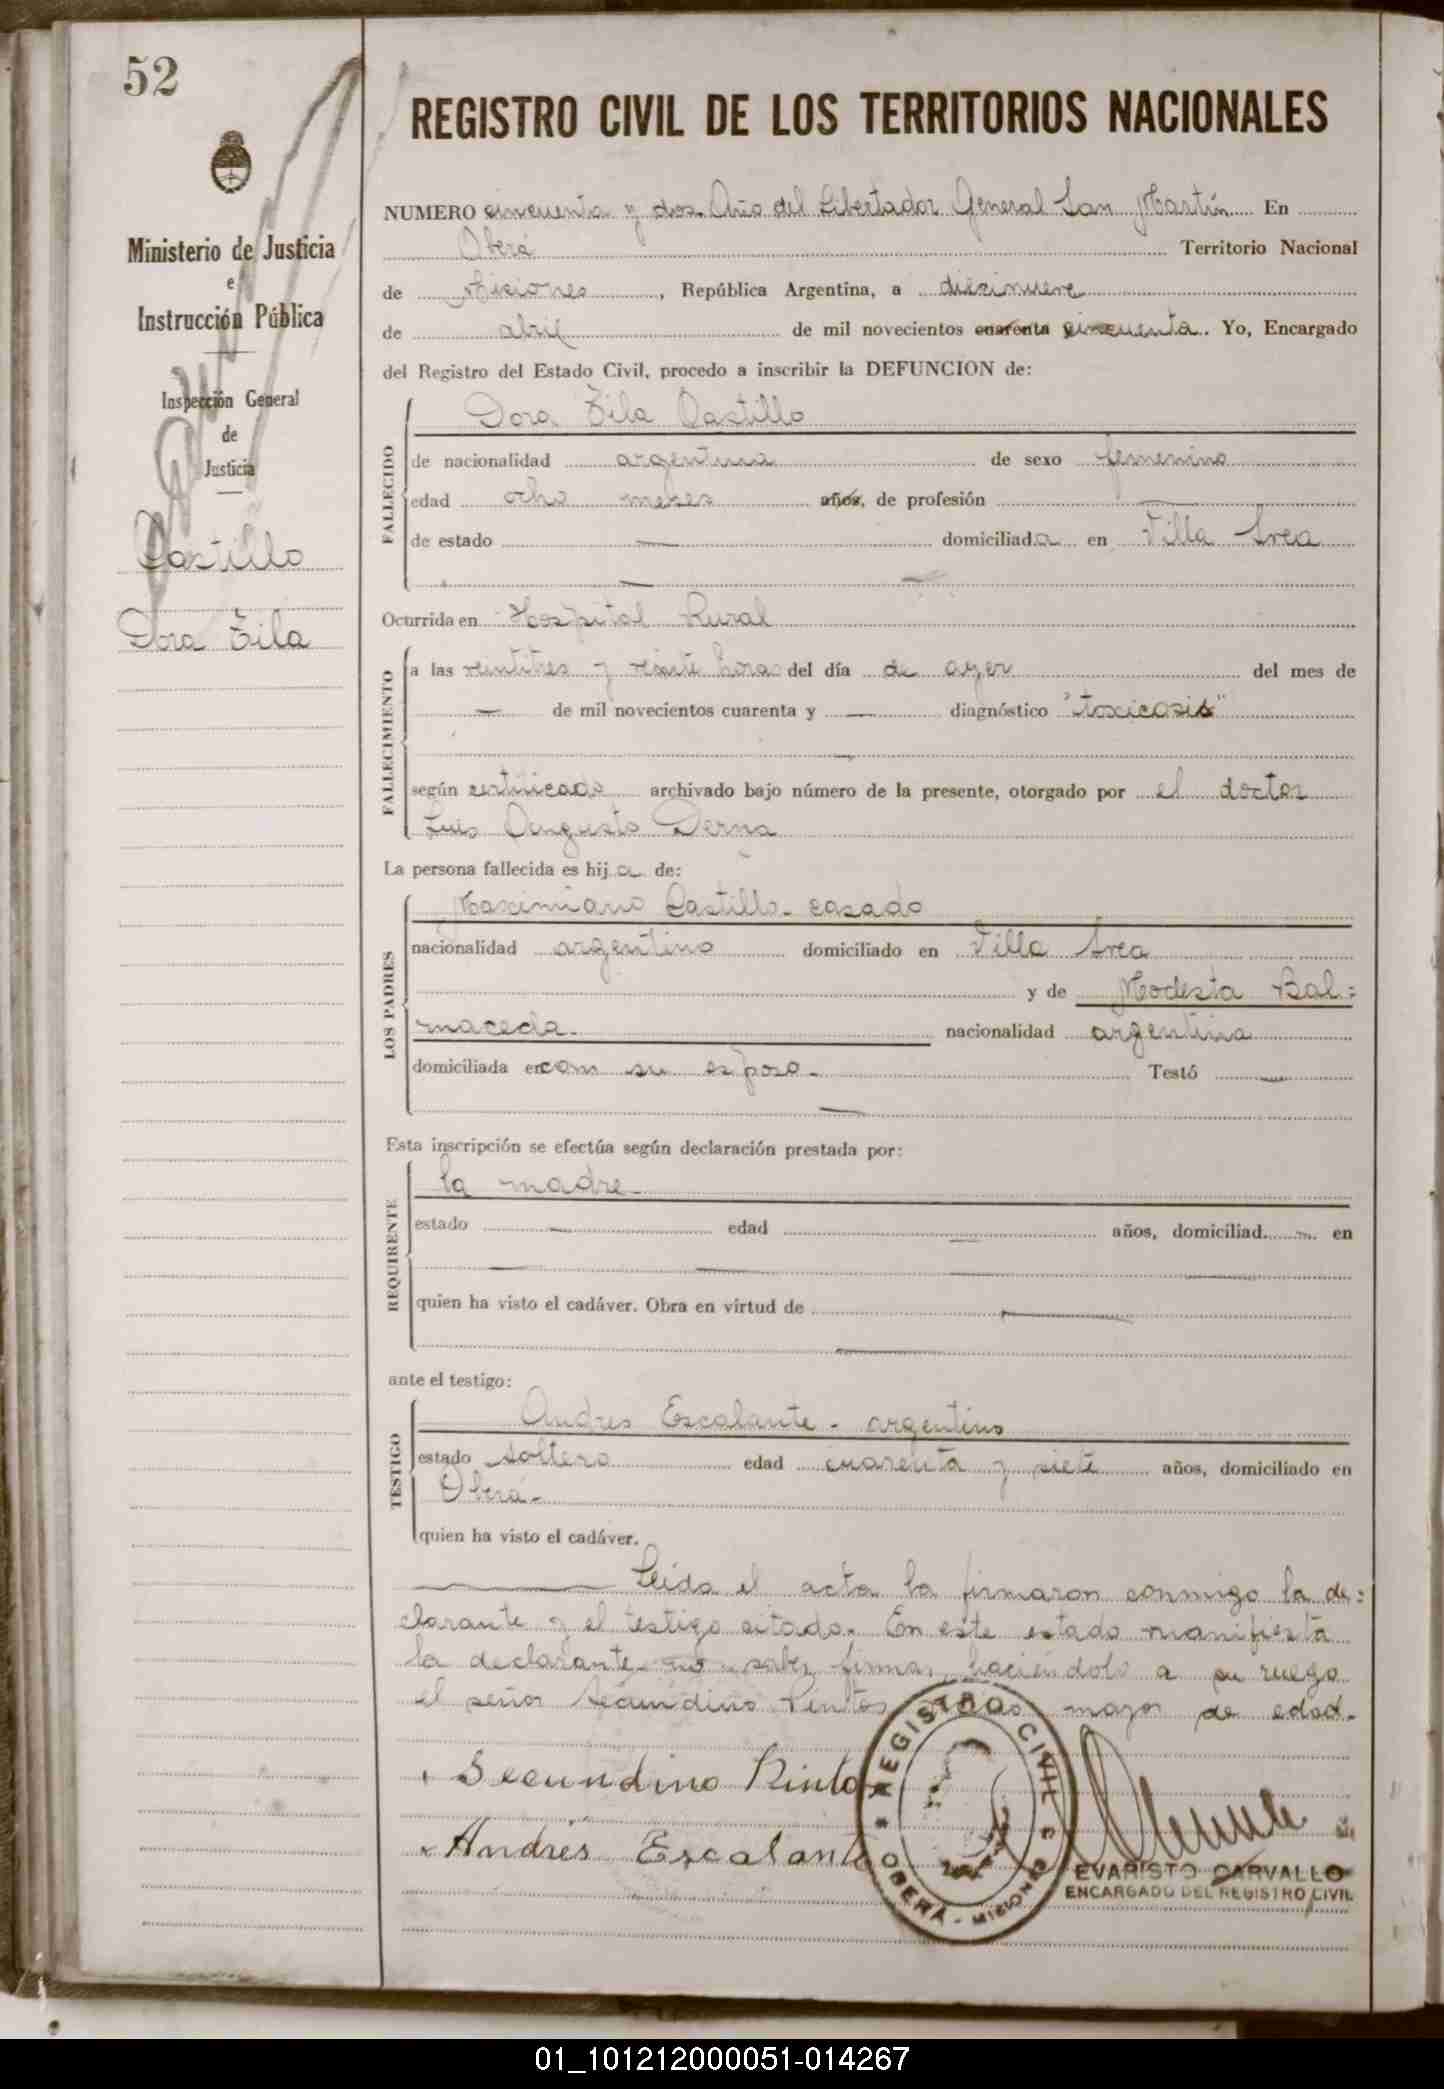 52
REGISTRO CIVIL DE LOS TERRITORIOS NACIONALES
Ministerio de Justicia
e
Instrucción Pública
Inspección General
de
Justicia
Castillo
Dora Zila
NUMERO cincuenta y dos. Año del Libertador General San Martín En
Oberá Territorio Nacional
de Misiones, República Argentina, a diezinueve
de abril de mil novecientos cuarenta y cincuenta. Yo, Encargado
del Registro del Estado Civil, procedo a inscribir la DEFUNCION de:
FALLECIDO
Dora Zila Castillo
de nacionalidad argentina de sexo femenino
edad ocho meses años, de profesión —
de estado — domiciliada en Villa Srea
Ocurrida en Hospital Rural
FALLECIMIENTO
a las veintitres y veinte horas del día de ayer del mes de
— de mil novecientos cuarenta y — diagnóstico "toxicosis"
según certificado archivado bajo número de la presente, otorgado por el doctor
Luis Augusto Derna
La persona fallecida es hija de:
LOS PADRES
Maximiano Castillo - casado
nacionalidad argentino domiciliado en Villa Srea
y de Modesta Bal=
maceda. nacionalidad argentina
domiciliada en con su esposo - Testó —
Esta inscripción se efectúa según declaración prestada por:
REQUIRENTE
la madre -
estado — edad — años, domiciliad — en
quien ha visto el cadáver. Obra en virtud de —
ante el testigo:
TESTIGO
Andres Escalante - argentino
estado soltero edad cuarenta y siete años, domiciliado en
Oberá -
quien ha visto el cadáver.
Leida el acta la firmaron conmigo la de=
clarante y el testigo citado. En este estado manifiesta
la declarante no saber firmar, haciéndolo a su ruego
el señor Secundino mayor de edad.
Secundino Pinto
Andrés Escalante
REGISTRO CIVIL
OBERÁ - MISIONES
EVARISTO CARVALLO
ENCARGADO DEL REGISTRO CIVIL
01_101212000051-014267